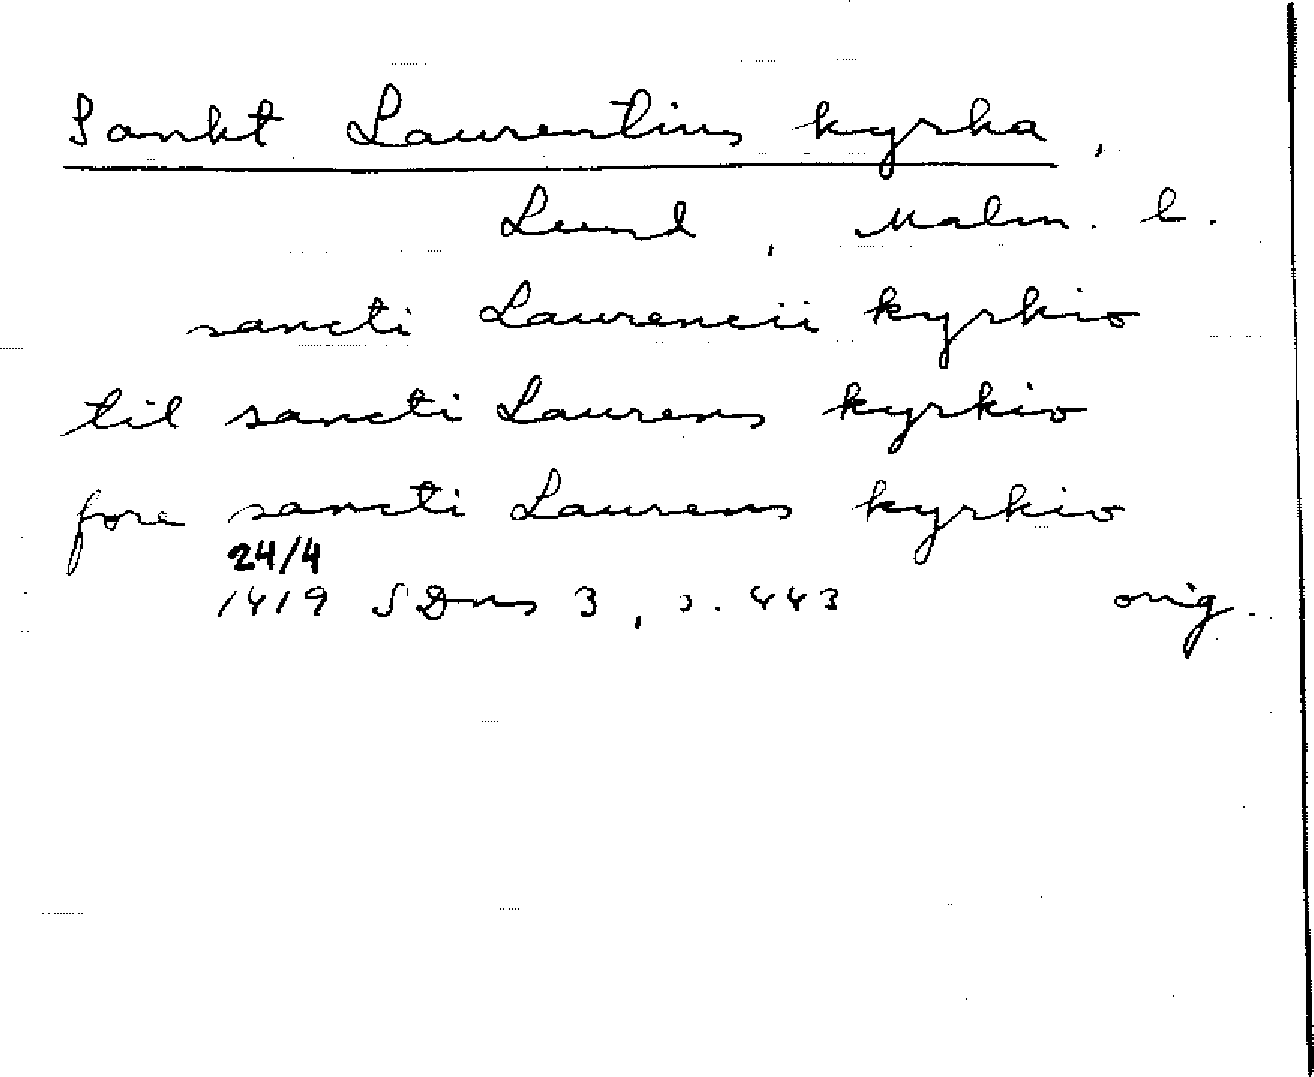 Sankt Laurentius kyrka,
Lund, Malm. l.
sancti Laurencii kyrkio
til sancti Laurens kyrkio
fore sancti Laurens kyrkio
24/4
1419 SDns 3, s. 443 orig.